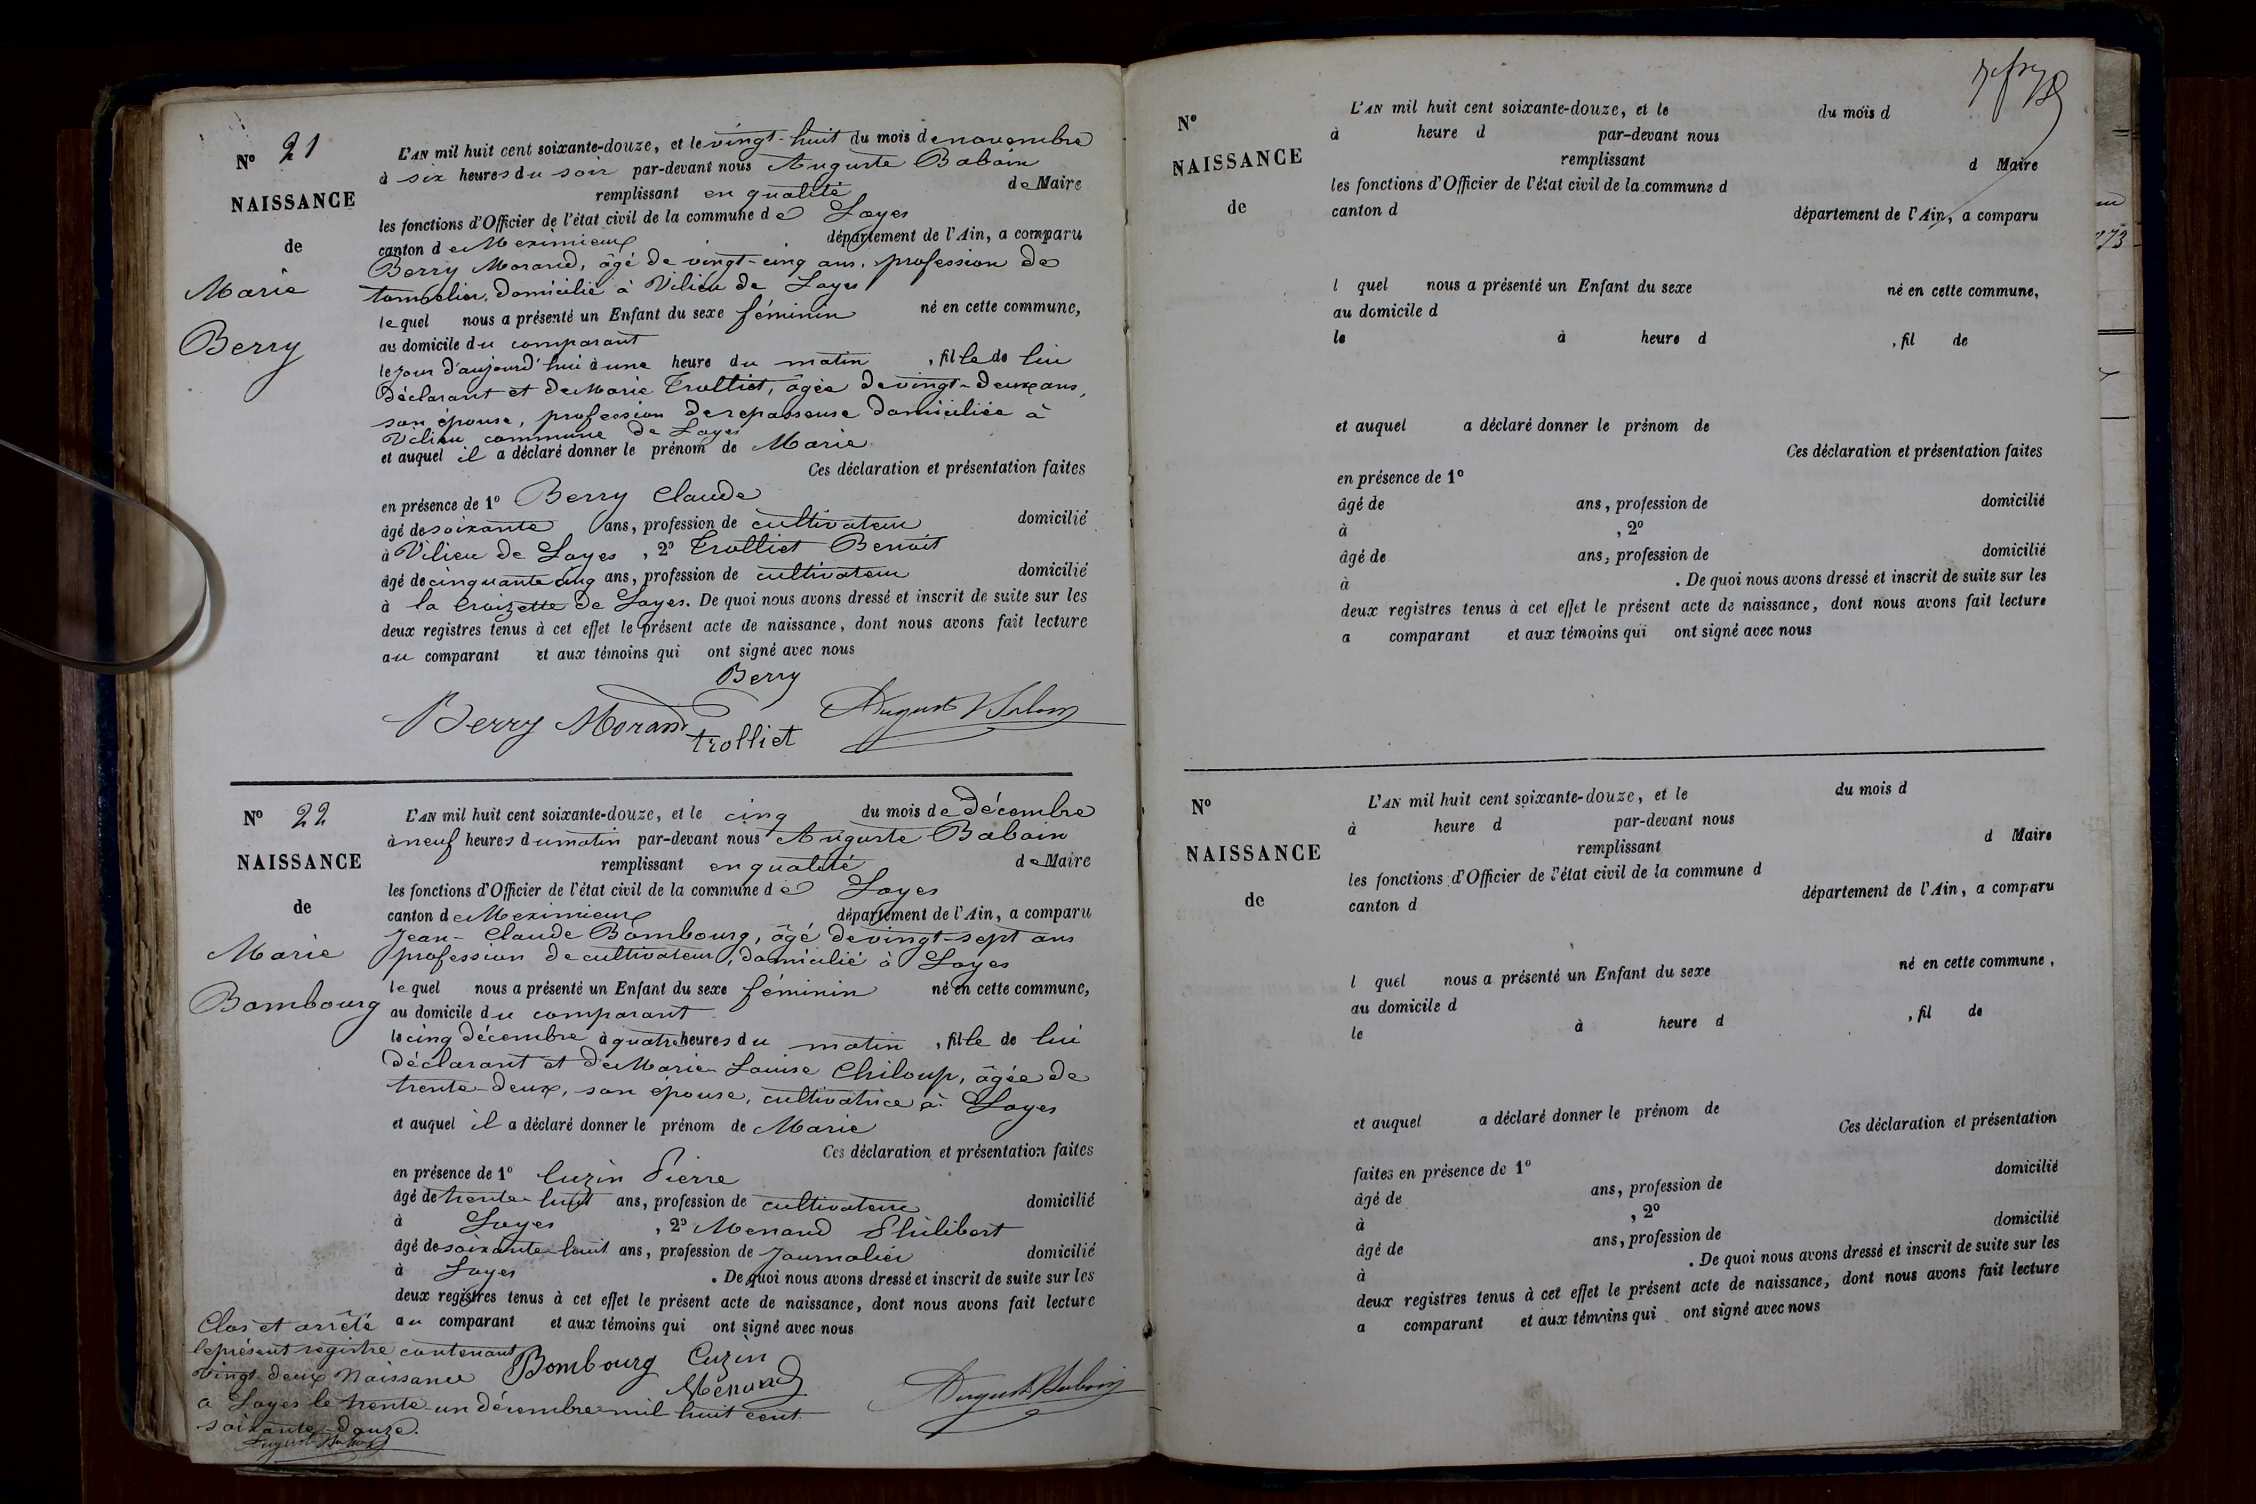 N° 21
NAISSANCE
de
Marie
Berry
L'AN mil huit cent soixante-douze, et le vingt-huit du mois de novembre
à six heures du soir par-devant nous Auguste Baboin
remplissant en qualité de Maire
les fonctions d'Officier de l'état civil de la commune de Loyes
canton de Meximieux département de l'Ain, a comparu
Berry Morand, âgé de vingt-cinq ans, profession de
tonnelier, domicilié à Vilieu de Loyes
lequel nous a présenté un Enfant du sexe féminin né en cette commune,
au domicile du comparant
le jour d'aujourd'hui à une heure du matin, fille de lui
Déclarant et de Marie Trolliet, âgée de vingt-deux ans,
son épouse, profession de repasseuse domiciliée à
Vilieu commune de Loyes
et auquel il a déclaré donner le prénom de Marie
Ces déclaration et présentation faites
en présence de 1° Berry Claude
âgé de soixante ans, profession de cultivateur domicilié
à Vilieu de Loyes, 2° Trolliet Benoit
âgé de cinquante cinq ans, profession de cultivateur domicilié
à la Croizette de Loyes. De quoi nous avons dressé et inscrit de suite sur les
deux registres tenus à cet effet le présent acte de naissance, dont nous avons fait lecture
au comparant et aux témoins qui ont signé avec nous
Berry
Berry Morand
Trolliet
Auguste Baboin
N° 22
NAISSANCE
de
Marie
Bombourg
L'AN mil huit cent soixante-douze, et le cinq du mois de Décembre
à neuf heures du matin par-devant nous Auguste Baboin
remplissant en qualité de Maire
les fonctions d'Officier de l'état civil de la commune de Loyes
canton de Meximieux département de l'Ain, a comparu
Jean-Claude Bombourg, âgé de vingt-sept ans
profession de cultivateur, domicilié à Loyes
lequel nous a présenté un Enfant du sexe féminin né en cette commune,
au domicile du comparant
le cinq décembre à quatre heures du matin, fille de lui
déclarant et de Marie-Louise Chiloup, âgée de
trente-deux, son épouse, cultivatrice à Loyes
et auquel il a déclaré donner le prénom de Marie
Ces déclaration et présentation faites
en présence de 1° Cuzin Pierre
âgé de trente-huit ans, profession de cultivateur domicilié
à Loyes, 2° Menand Philibert
âgé de soixante-huit ans, profession de Journalier domicilié
à Loyes. De quoi nous avons dressé et inscrit de suite sur les
deux registres tenus à cet effet le présent acte de naissance, dont nous avons fait lecture
au comparant et aux témoins qui ont signé avec nous
Clos et arrêté
le présent registre contenant
vingt-deux Naissance
a Loyes le trente-un décembre mil huit cent
soixante-douze.
Auguste Baboin
Bombourg
Cuzin
Ménand
Auguste Baboin
N°
NAISSANCE
de
L'AN mil huit cent soixante-douze, et le du mois d
à heure d par-devant nous
remplissant d Maire
les fonctions d'Officier de l'état civil de la commune d
canton d département de l'Ain, a comparu
l quel nous a présenté un Enfant du sexe né en cette commune,
au domicile d
le à heure d , fil de
et auquel a déclaré donner le prénom de
Ces déclaration et présentation faites
en présence de 1°
âgé de ans, profession de domicilié
à , 2°
âgé de ans, profession de domicilié
à . De quoi nous avons dressé et inscrit de suite sur les
deux registres tenus à cet effet le présent acte de naissance, dont nous avons fait lecture
a comparant et aux témoins qui ont signé avec nous
N°
NAISSANCE
de
L'AN mil huit cent soixante-douze, et le du mois d
à heure d par-devant nous
remplissant d Maire
les fonctions d'Officier de l'état civil de la commune d
canton d département de l'Ain, a comparu
l quel nous a présenté un Enfant du sexe né en cette commune,
au domicile d
le à heure d , fil de
et auquel a déclaré donner le prénom de
Ces déclaration et présentation
faites en présence de 1° domicilié
âgé de ans, profession de
à , 2° domicilié
âgé de ans, profession de
à . De quoi nous avons dressé et inscrit de suite sur les
deux registres tenus à cet effet le présent acte de naissance, dont nous avons fait lecture
a comparant et aux témoins qui ont signé avec nous